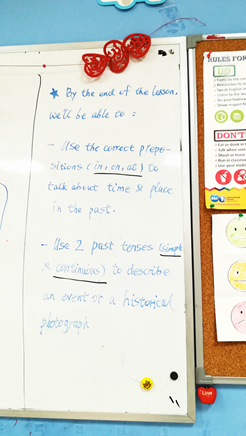 ★ By the end of the lesson,
we'll be able to :
- Use the correct prepo-
sitions (in, on, at) to
talk about time & place
in the past.
- Use 2 past tenses (simple
& continuous) to describe
an event or a historical
photograph
RULES FOR
DO
DON'T
Love